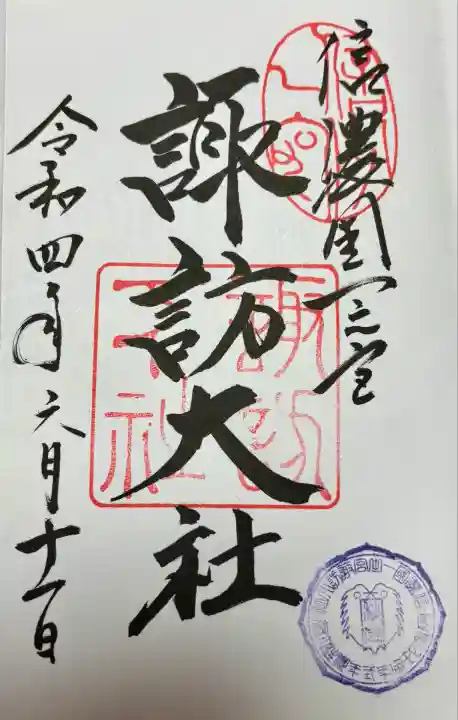 信濃國一之宮
諏訪大社
令和四年六月十一日
諏訪
下社